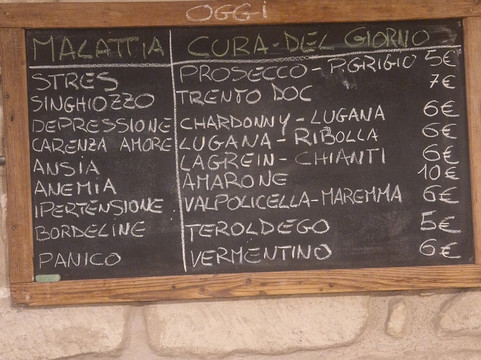 OGGI
MALATTIA CURA-DEL GIORNO
STRES PROSECCO-P.GRIGIO 5€
SINGHIOZZO TRENTO DOC 7€
DEPRESSIONE CHARDONNY-LUGANA 6€
CARENZA AMORE LUGANA-RIBOLLA 6€
ANSIA LAGREIN-CHIANTI 6€
ANEMIA AMARONE 10€
IPERTENSIONE VALPOLICELLA-MAREMMA 6€
BORDELINE TEROLDEGO 5€
PANICO VERMENTINO 6€